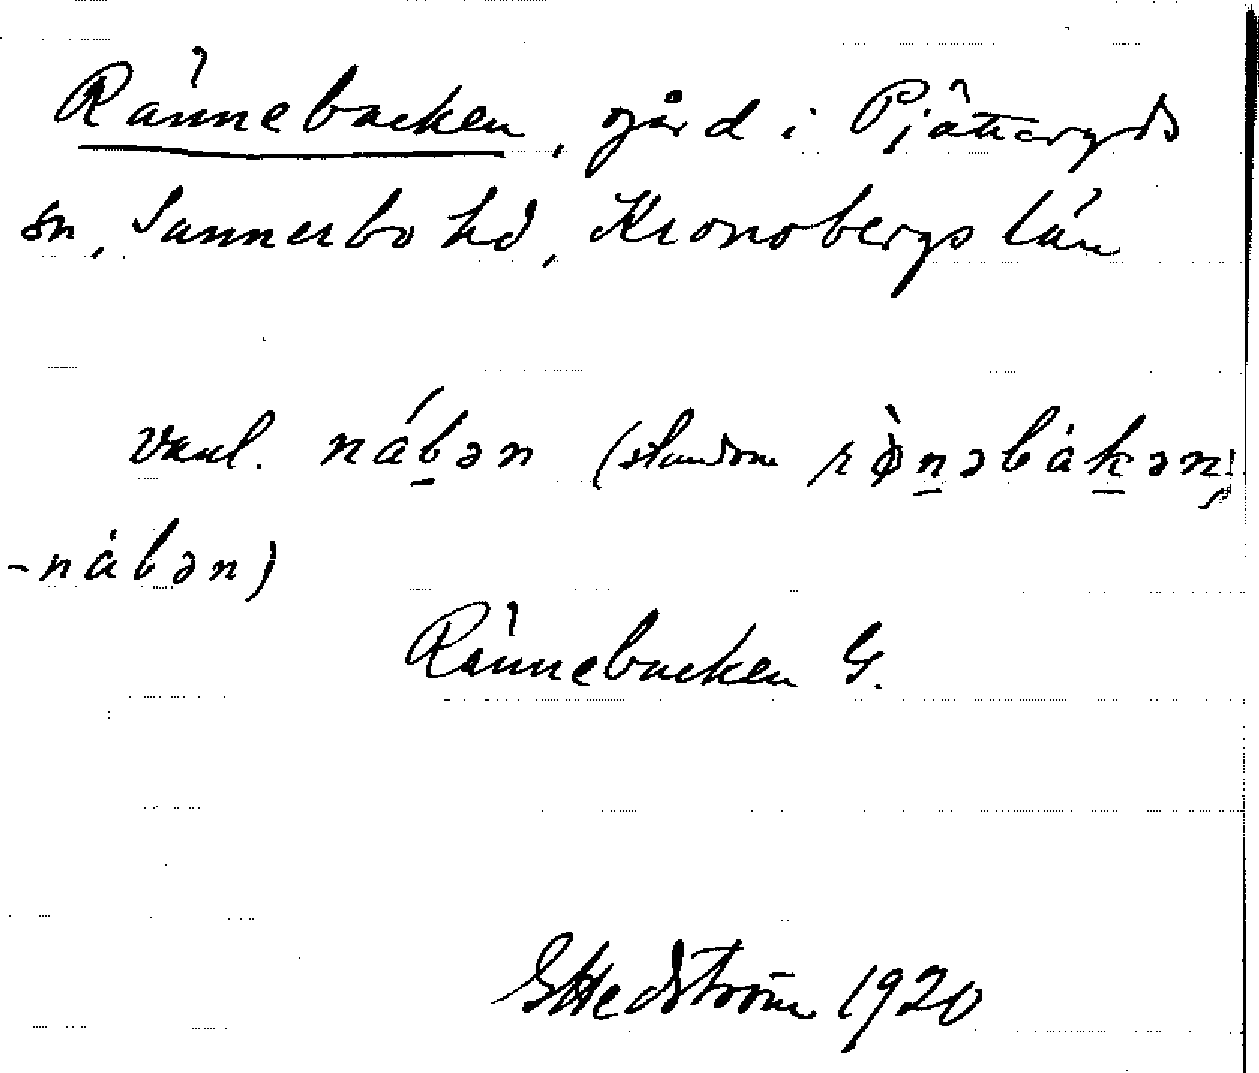 Rännebacken, gård i Pjätteryds
sn, Sunnerbo hd, Kronobergs län
vanl. nábən (stundom rø̀nəbákən,
-nábən)
Rännebacken G.
G Hedström 1920